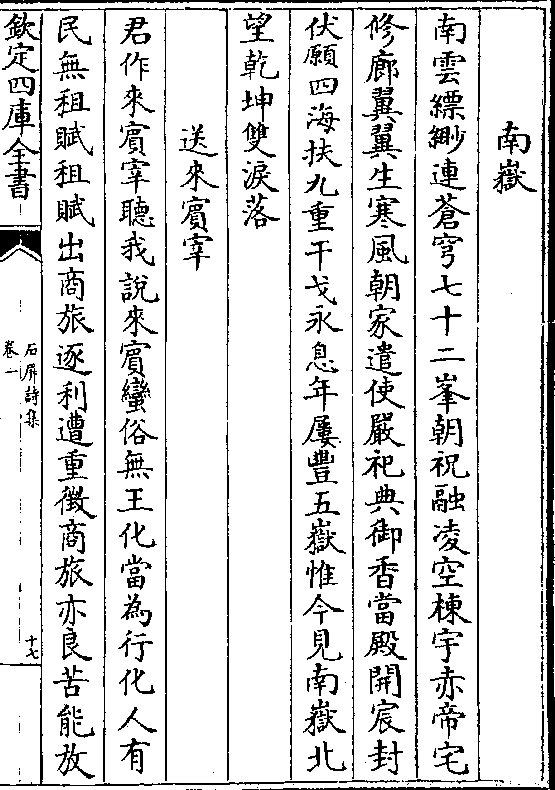 南嶽
南雲縹緲連蒼穹七十二峯朝祝融凌空棟宇赤帝宅
修廊翼翼生寒風朝家遣使嚴祀典御香當殿開宸封
伏願四海扶九重干戈永息年屢豐五嶽惟今見南嶽北
望乾坤雙淚落
送來賓宰
君作來賓宰聽我說來賓蠻俗無王化當為行化人有
民無租賦租賦出商旅逐利遭重徵商旅亦良苦能放
欽定四庫全書
石屏詩集
卷一
十七